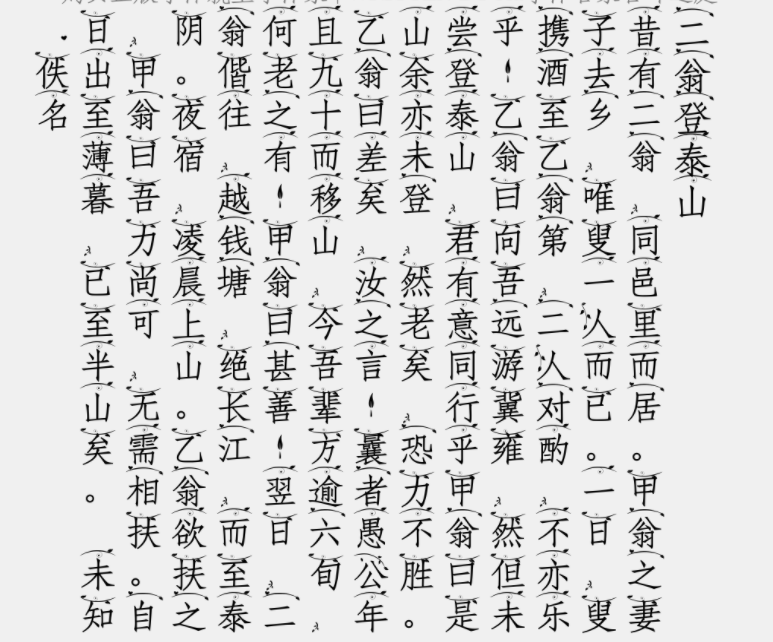 二翁登泰山
昔有二翁，同邑里而居。甲翁之妻
子去乡，唯叟一人而已。一日，叟
携酒至乙翁第，二人对酌，不亦乐
乎！乙翁曰向吾远游冀雍，然但未
尝登泰山，君有意同行乎甲翁曰是
山余亦未登，然老矣，恐力不胜。
乙翁曰差矣，汝之言！曩者愚公年
且九十而移山，今吾辈方逾六旬，
何老之有！甲翁曰甚善！翌日，二
翁偕往，越钱塘，绝长江，而至泰
阴。夜宿，凌晨上山。乙翁欲扶之
，甲翁曰吾力尚可，无需相扶。自
日出至薄暮，已至半山矣。 未知
·佚名